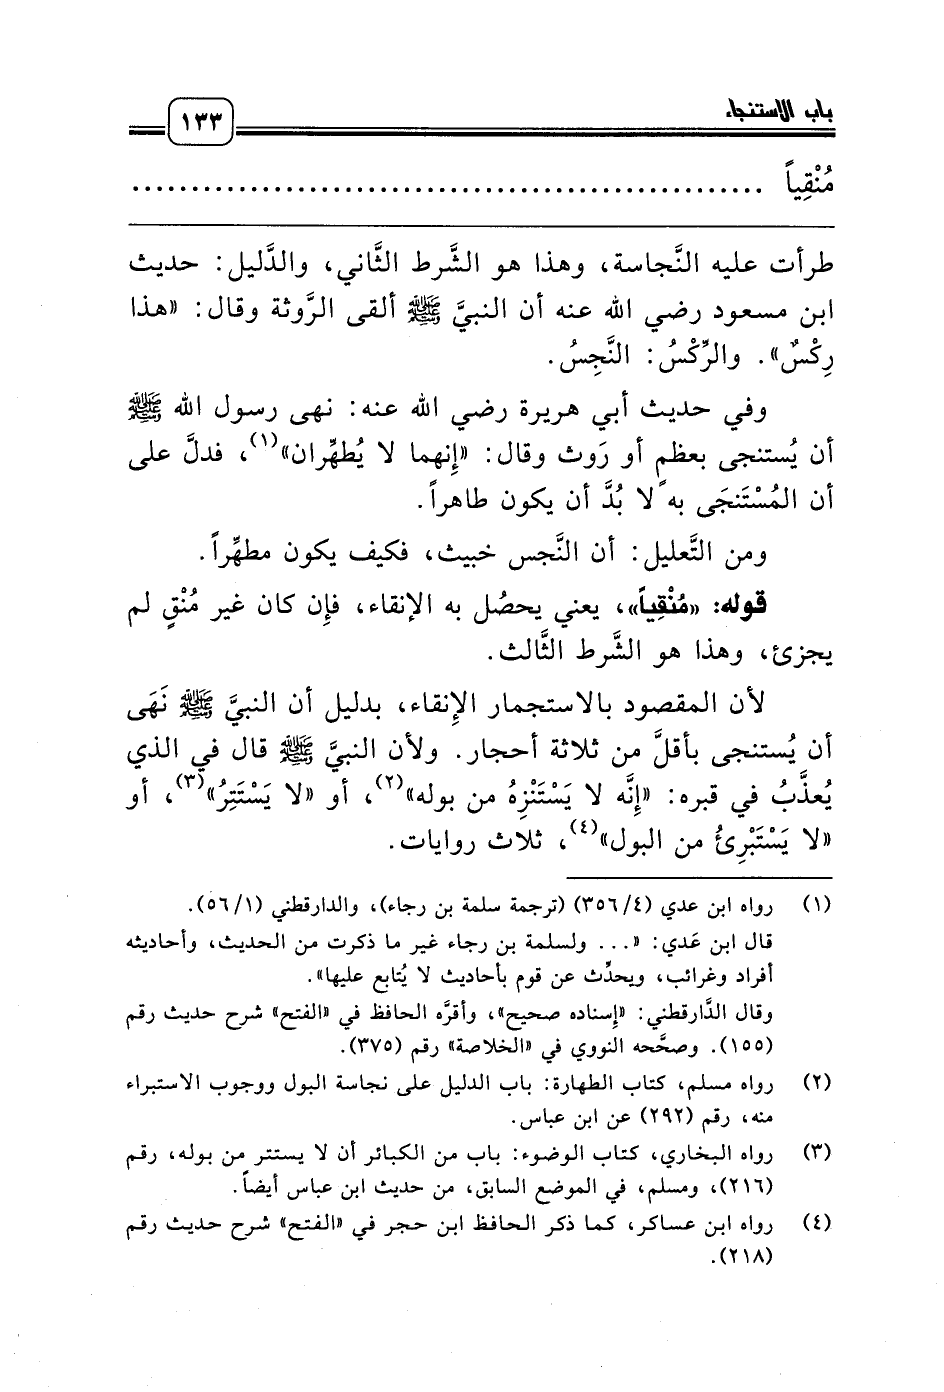 باب الاستنجاء
١٣٣
مُنْقِياً ......................................................
طرأت عليه النَّجاسة، وهذا هو الشَّرط الثَّاني، والدَّليل: حديث
ابن مسعود رضي الله عنه أن النبيَّ ﷺ ألقى الرَّوثة وقال: «هذا
رِكْسٌ». والرِّكْسُ: النَّجِسُ.
وفي حديث أبي هريرة رضي الله عنه: نهى رسول الله ﷺ
أن يُستنجى بعظمٍ أو رَوث وقال: «إِنهما لا يُطهِّران»(١)، فدلَّ على
أن المُسْتَنجَى به لا بُدَّ أن يكون طاهراً.
ومن التَّعليل: أن النَّجس خبيث، فكيف يكون مطهِّراً.
قوله: «مُنْقِياً»، يعني يحصُل به الإنقاء، فإِن كان غير مُنْقٍ لم
يجزئ، وهذا هو الشَّرط الثَّالث.
لأن المقصود بالاستجمار الإِنقاء، بدليل أن النبيَّ ﷺ نَهَى
أن يُستنجى بأقلَّ من ثلاثة أحجار. ولأن النبيَّ ﷺ قال في الذي
يُعذَّبُ في قبره: «إِنَّه لا يَسْتَنْزِهُ من بوله»(٢)، أو «لا يَسْتَتِرُ»(٣)، أو
«لا يَسْتَبْرِئُ من البول»(٤)، ثلاث روايات.
(١) رواه ابن عدي (٣٥٦/٤) (ترجمة سلمة بن رجاء)، والدارقطني (٥٦/١).
قال ابن عَدي: «... ولسلمة بن رجاء غير ما ذكرت من الحديث، وأحاديثه
أفراد وغرائب، ويحدِّث عن قوم بأحاديث لا يُتابع عليها».
وقال الدَّارقطني: «إسناده صحيح»، وأقرَّه الحافظ في «الفتح» شرح حديث رقم
(١٥٥). وصحَّحه النووي في «الخلاصة» رقم (٣٧٥).
(٢) رواه مسلم، كتاب الطهارة: باب الدليل على نجاسة البول ووجوب الاستبراء
منه، رقم (٢٩٢) عن ابن عباس.
(٣) رواه البخاري، كتاب الوضوء: باب من الكبائر أن لا يستتر من بوله، رقم
(٢١٦)، ومسلم، في الموضع السابق، من حديث ابن عباس أيضاً.
(٤) رواه ابن عساكر، كما ذكر الحافظ ابن حجر في «الفتح» شرح حديث رقم
(٢١٨).